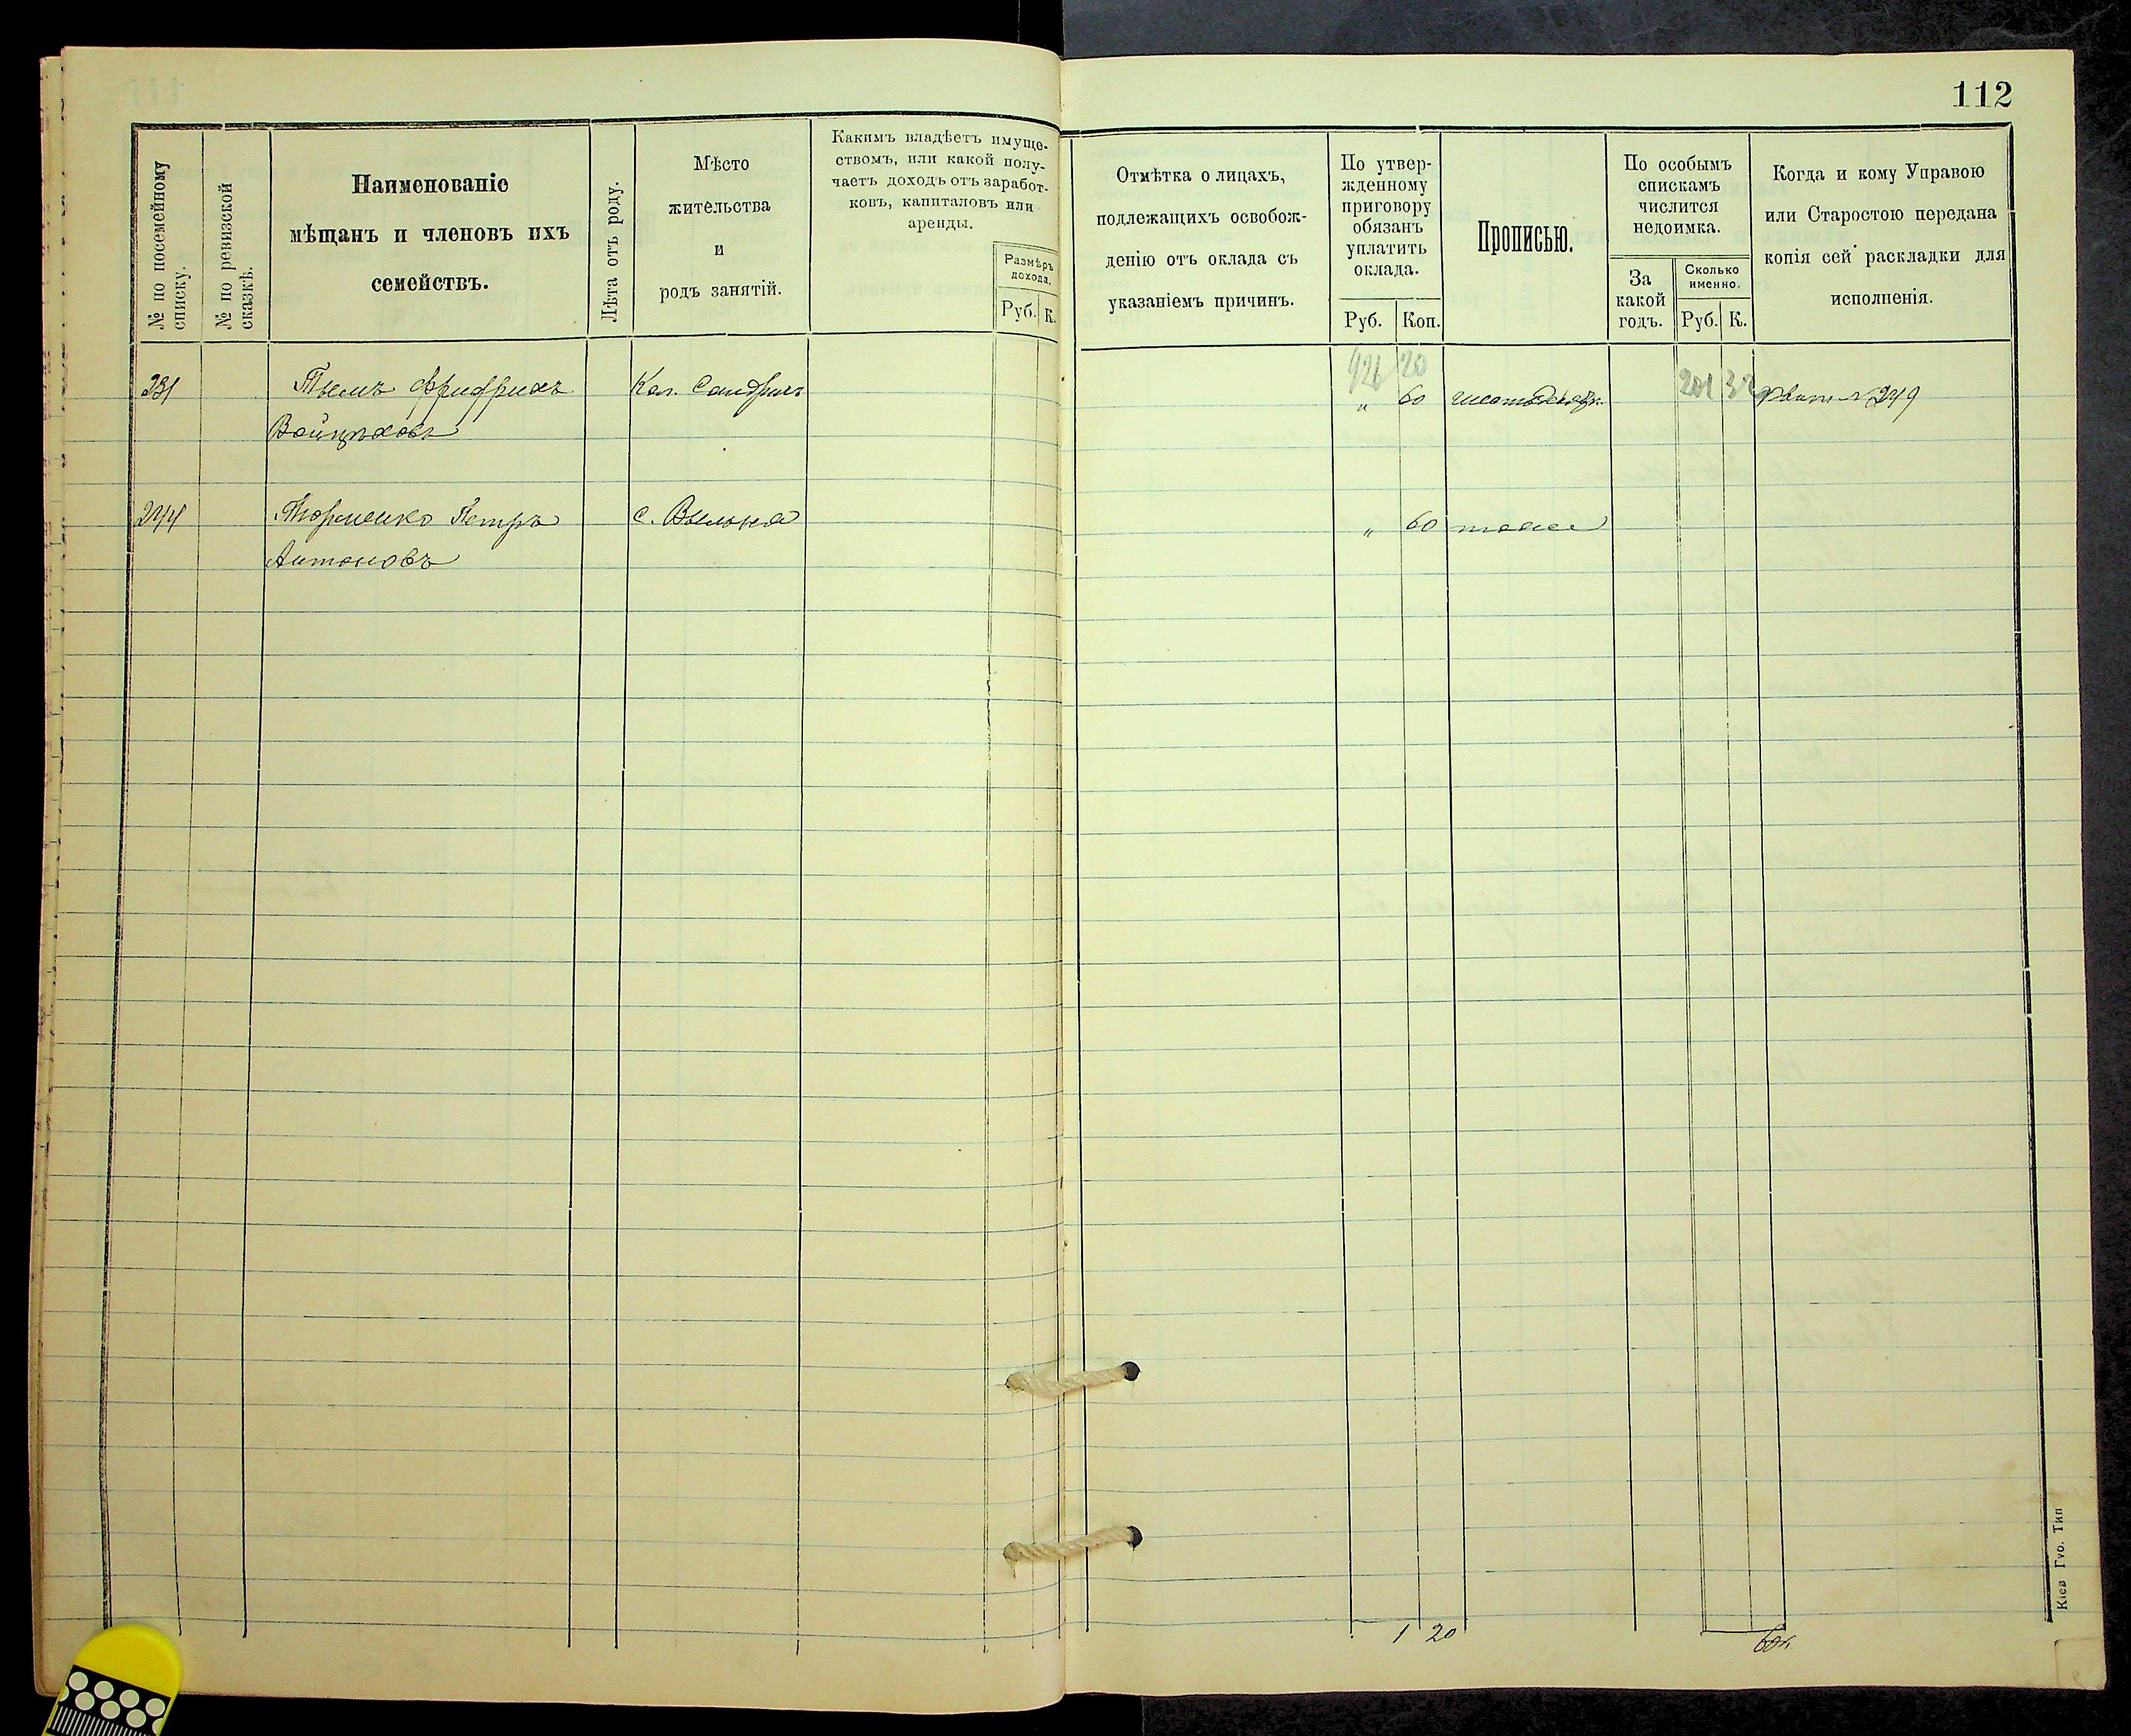 112
№ по посемейному
списку.
№ по ревизской
сказкѣ.
Наименованіе
мѣщанъ и членовъ ихъ
семействъ.
Лѣта отъ роду.
Мѣсто
жительства
и
родъ занятій.
Какимъ владѣетъ имуще-
ствомъ, или какой полу-
чаетъ доходъ отъ заработ-
ковъ, капиталовъ или
аренды.
Размѣръ
дохода.
Руб. К.
Отмѣтка о лицахъ,
подлежащихъ освобож-
денію отъ оклада съ
указаніемъ причинъ.
По утвер-
жденному
приговору
обязанъ
уплатить
оклада.
Руб. Коп.
Прописью.
По особымъ
спискамъ
числится
недоимка.
За
какой
годъ.
Сколько
именно.
Руб. К.
Когда и кому Управою
или Старостою передана
копія сей раскладки для
исполненія.
926 20
231 Тымъ Фридрихъ Кол. " 60 249
244 Петръ с. Вильня " 60 тоже
Антоновъ
1 20
60к
Кіев Гуо. Тип